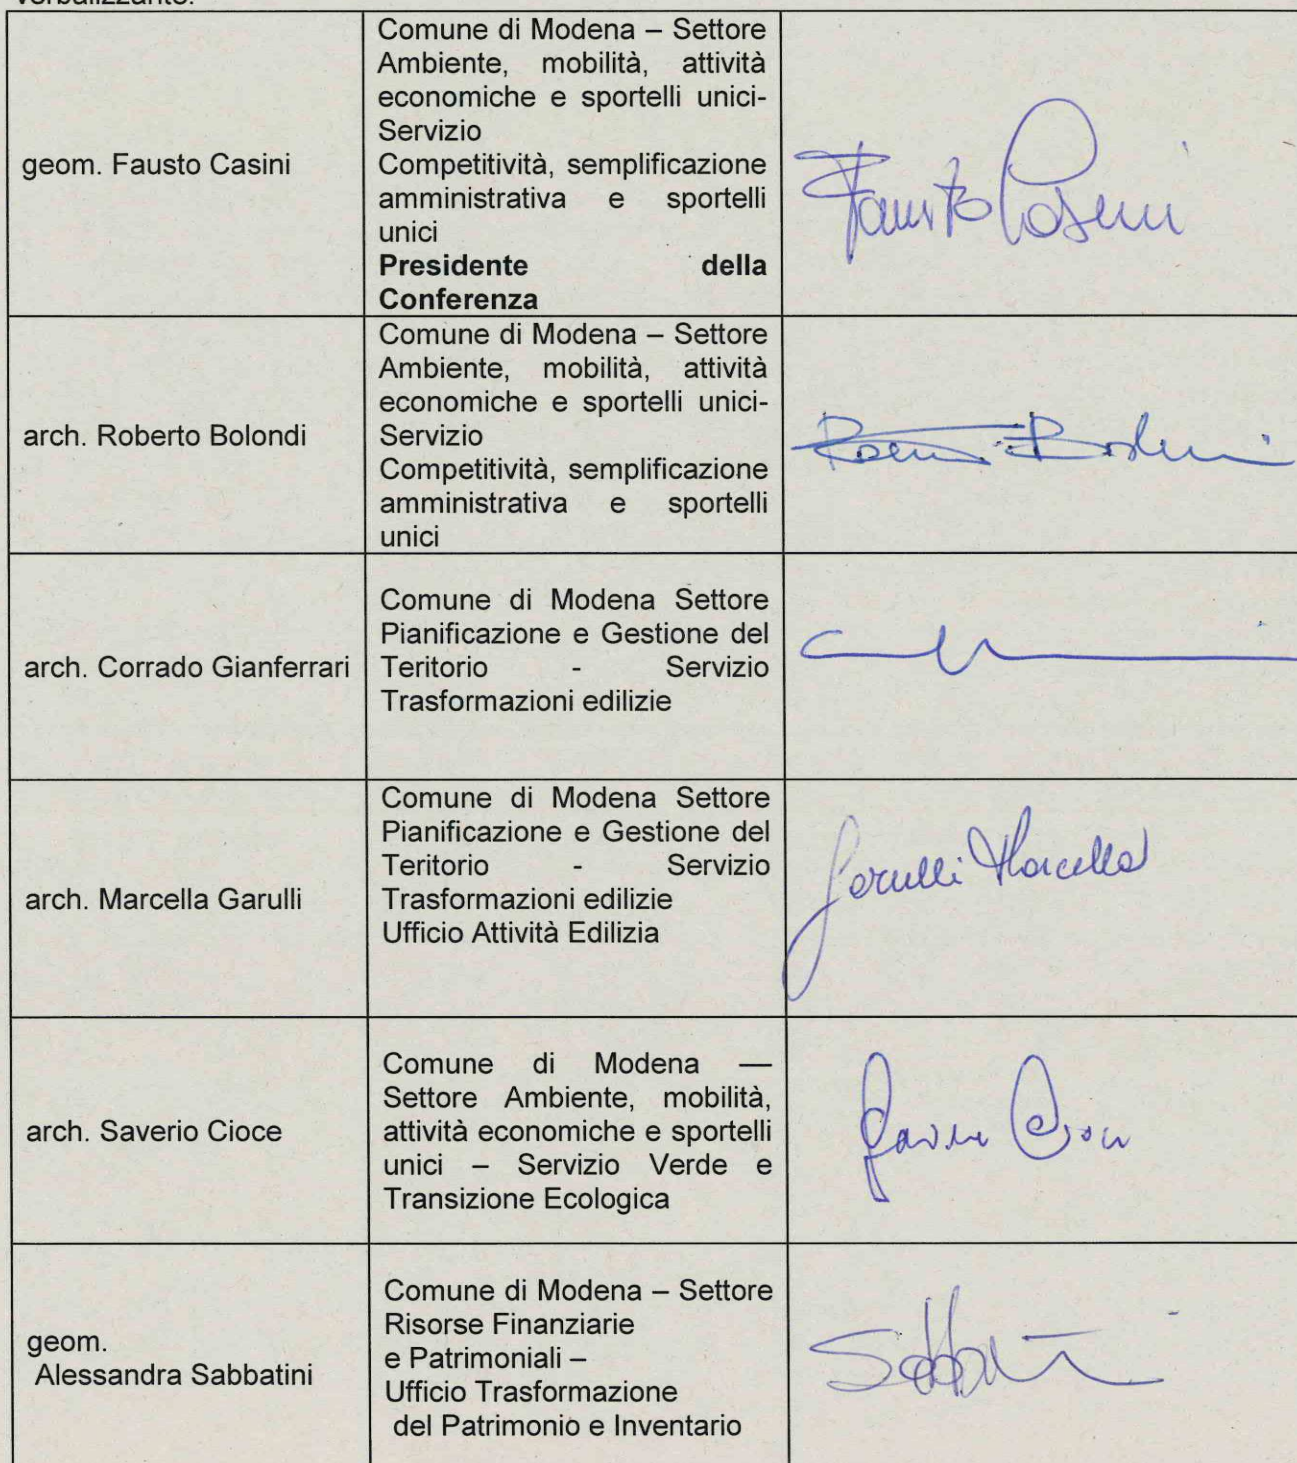 verbalizzante.
geom. Fausto Casini
Comune di Modena – Settore
Ambiente, mobilità, attività
economiche e sportelli unici-
Servizio
Competitività, semplificazione
amministrativa e sportelli
unici
Presidente della
Conferenza
Fausto Casini
arch. Roberto Bolondi
Comune di Modena – Settore
Ambiente, mobilità, attività
economiche e sportelli unici-
Servizio
Competitività, semplificazione
amministrativa e sportelli
unici
arch. Corrado Gianferrari
Comune di Modena Settore
Pianificazione e Gestione del
Teritorio - Servizio
Trasformazioni edilizie
arch. Marcella Garulli
Comune di Modena Settore
Pianificazione e Gestione del
Teritorio - Servizio
Trasformazioni edilizie
Ufficio Attività Edilizia
Garulli Marcella
arch. Saverio Cioce
Comune di Modena —
Settore Ambiente, mobilità,
attività economiche e sportelli
unici – Servizio Verde e
Transizione Ecologica
geom.
Alessandra Sabbatini
Comune di Modena – Settore
Risorse Finanziarie
e Patrimoniali –
Ufficio Trasformazione
del Patrimonio e Inventario